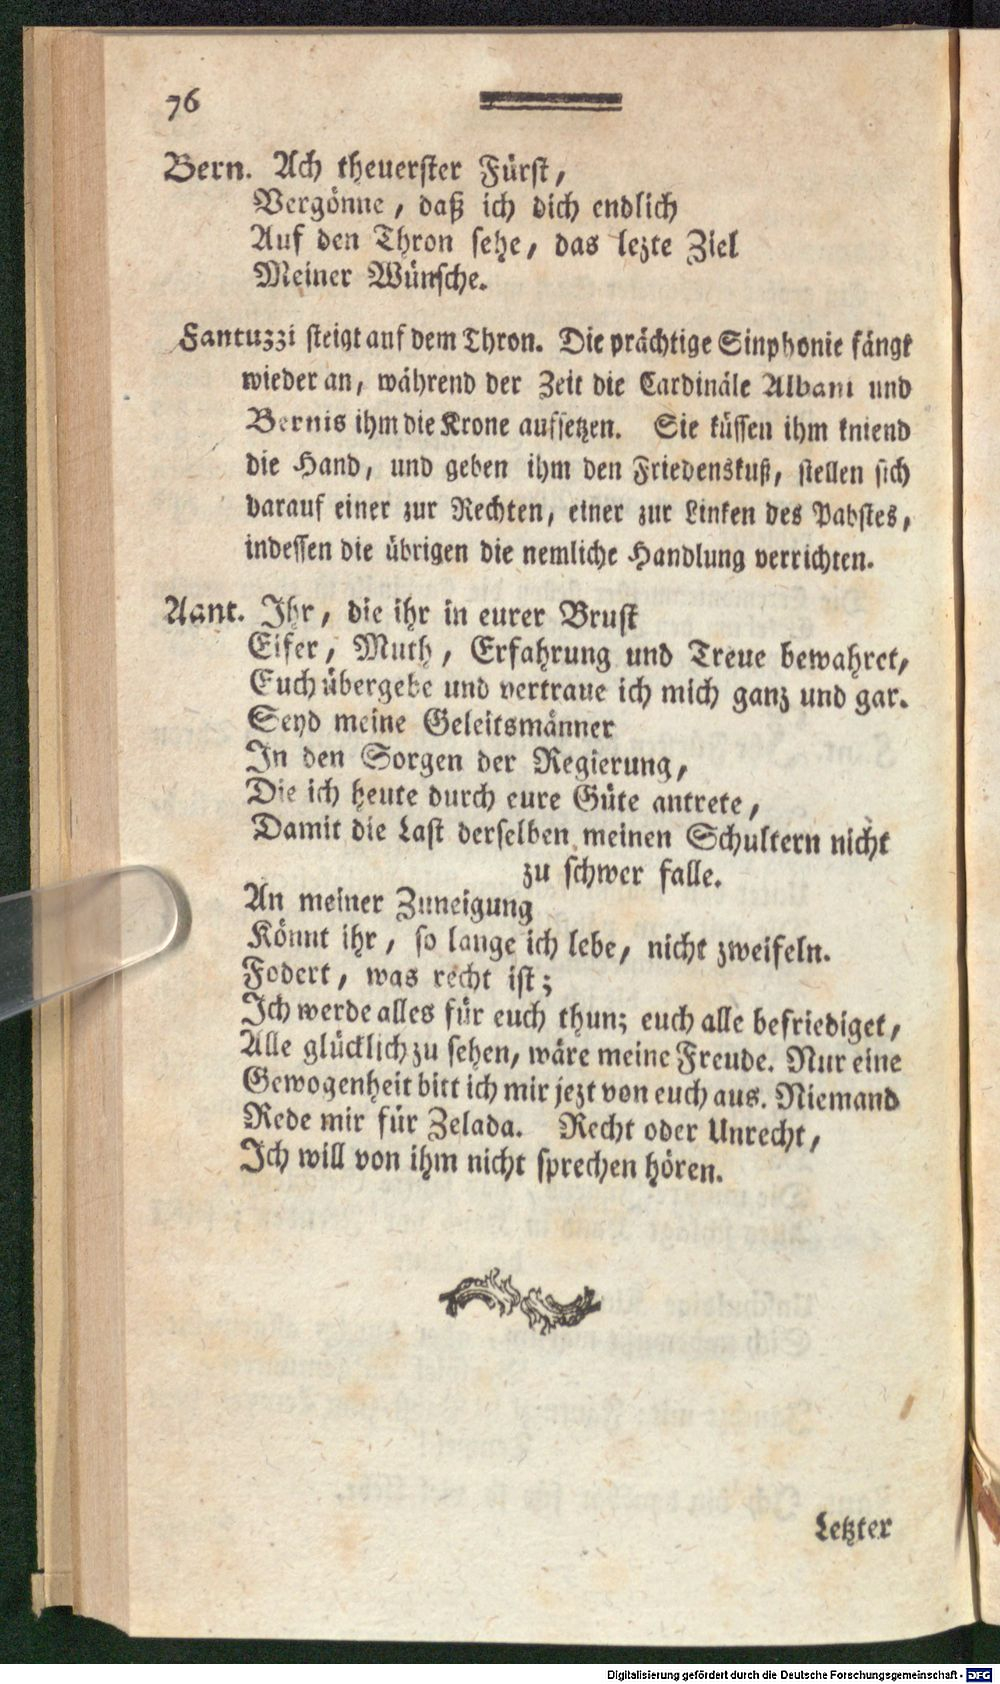 76
Bern. Ach theuerster Fürst,
Vergönne, daß ich dich endlich
Auf den Thron sehe, das lezte Ziel
Meiner Wünsche.
Fantuzzi steigt auf dem Thron. Die prächtige Sinphonie fängt
wieder an, während der Zeit die Cardinäle Albani und
Bernis ihm die Krone aufsetzen. Sie küssen ihm kniend
die Hand, und geben ihm den Friedenskuß, stellen sich
darauf einer zur Rechten, einer zur Linken des Pabstes,
indessen die übrigen die nemliche Handlung verrichten.
Aant. Ihr, die ihr in eurer Brust
Eifer, Muth, Erfahrung und Treue bewahret,
Euch übergebe und vertraue ich mich ganz und gar.
Seyd meine Geleitsmänner
In den Sorgen der Regierung,
Die ich heute durch eure Güte antrete,
Damit die Last derselben meinen Schultern nicht
zu schwer falle.
An meiner Zuneigung
Könnt ihr, so lange ich lebe, nicht zweifeln.
Fodert, was recht ist;
Ich werde alles für euch thun; euch alle befriediget,
Alle glücklich zu sehen, wäre meine Freude. Nur eine
Gewogenheit bitt ich mir jezt von euch aus. Niemand
Rede mir für Zelada. Recht oder Unrecht,
Ich will von ihm nicht sprechen hören.
Letzter
Digitalisierung gefördert durch die Deutsche Forschungsgemeinschaft - DFG